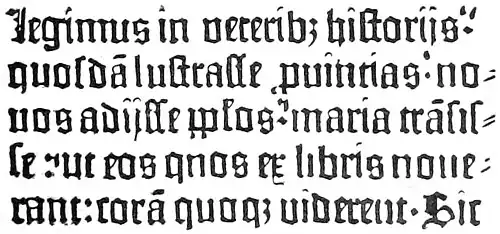 Iegimus in veteribꝫ historijs:
quosdā lustrasse ꝓuintias: no⸗
uos adijsse pp̄los: maria trāsis⸗
se: ut eos qnos ex libris noue⸗
rant: corā quoqꝫ viderent. Sic